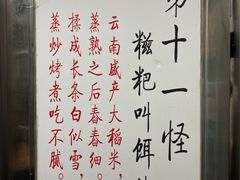 第十一怪
糍粑叫饵
云南盛产大稻米，
蒸熟之后舂舂细。
揉成长条白似雪，
蒸炒烤煮吃不腻。